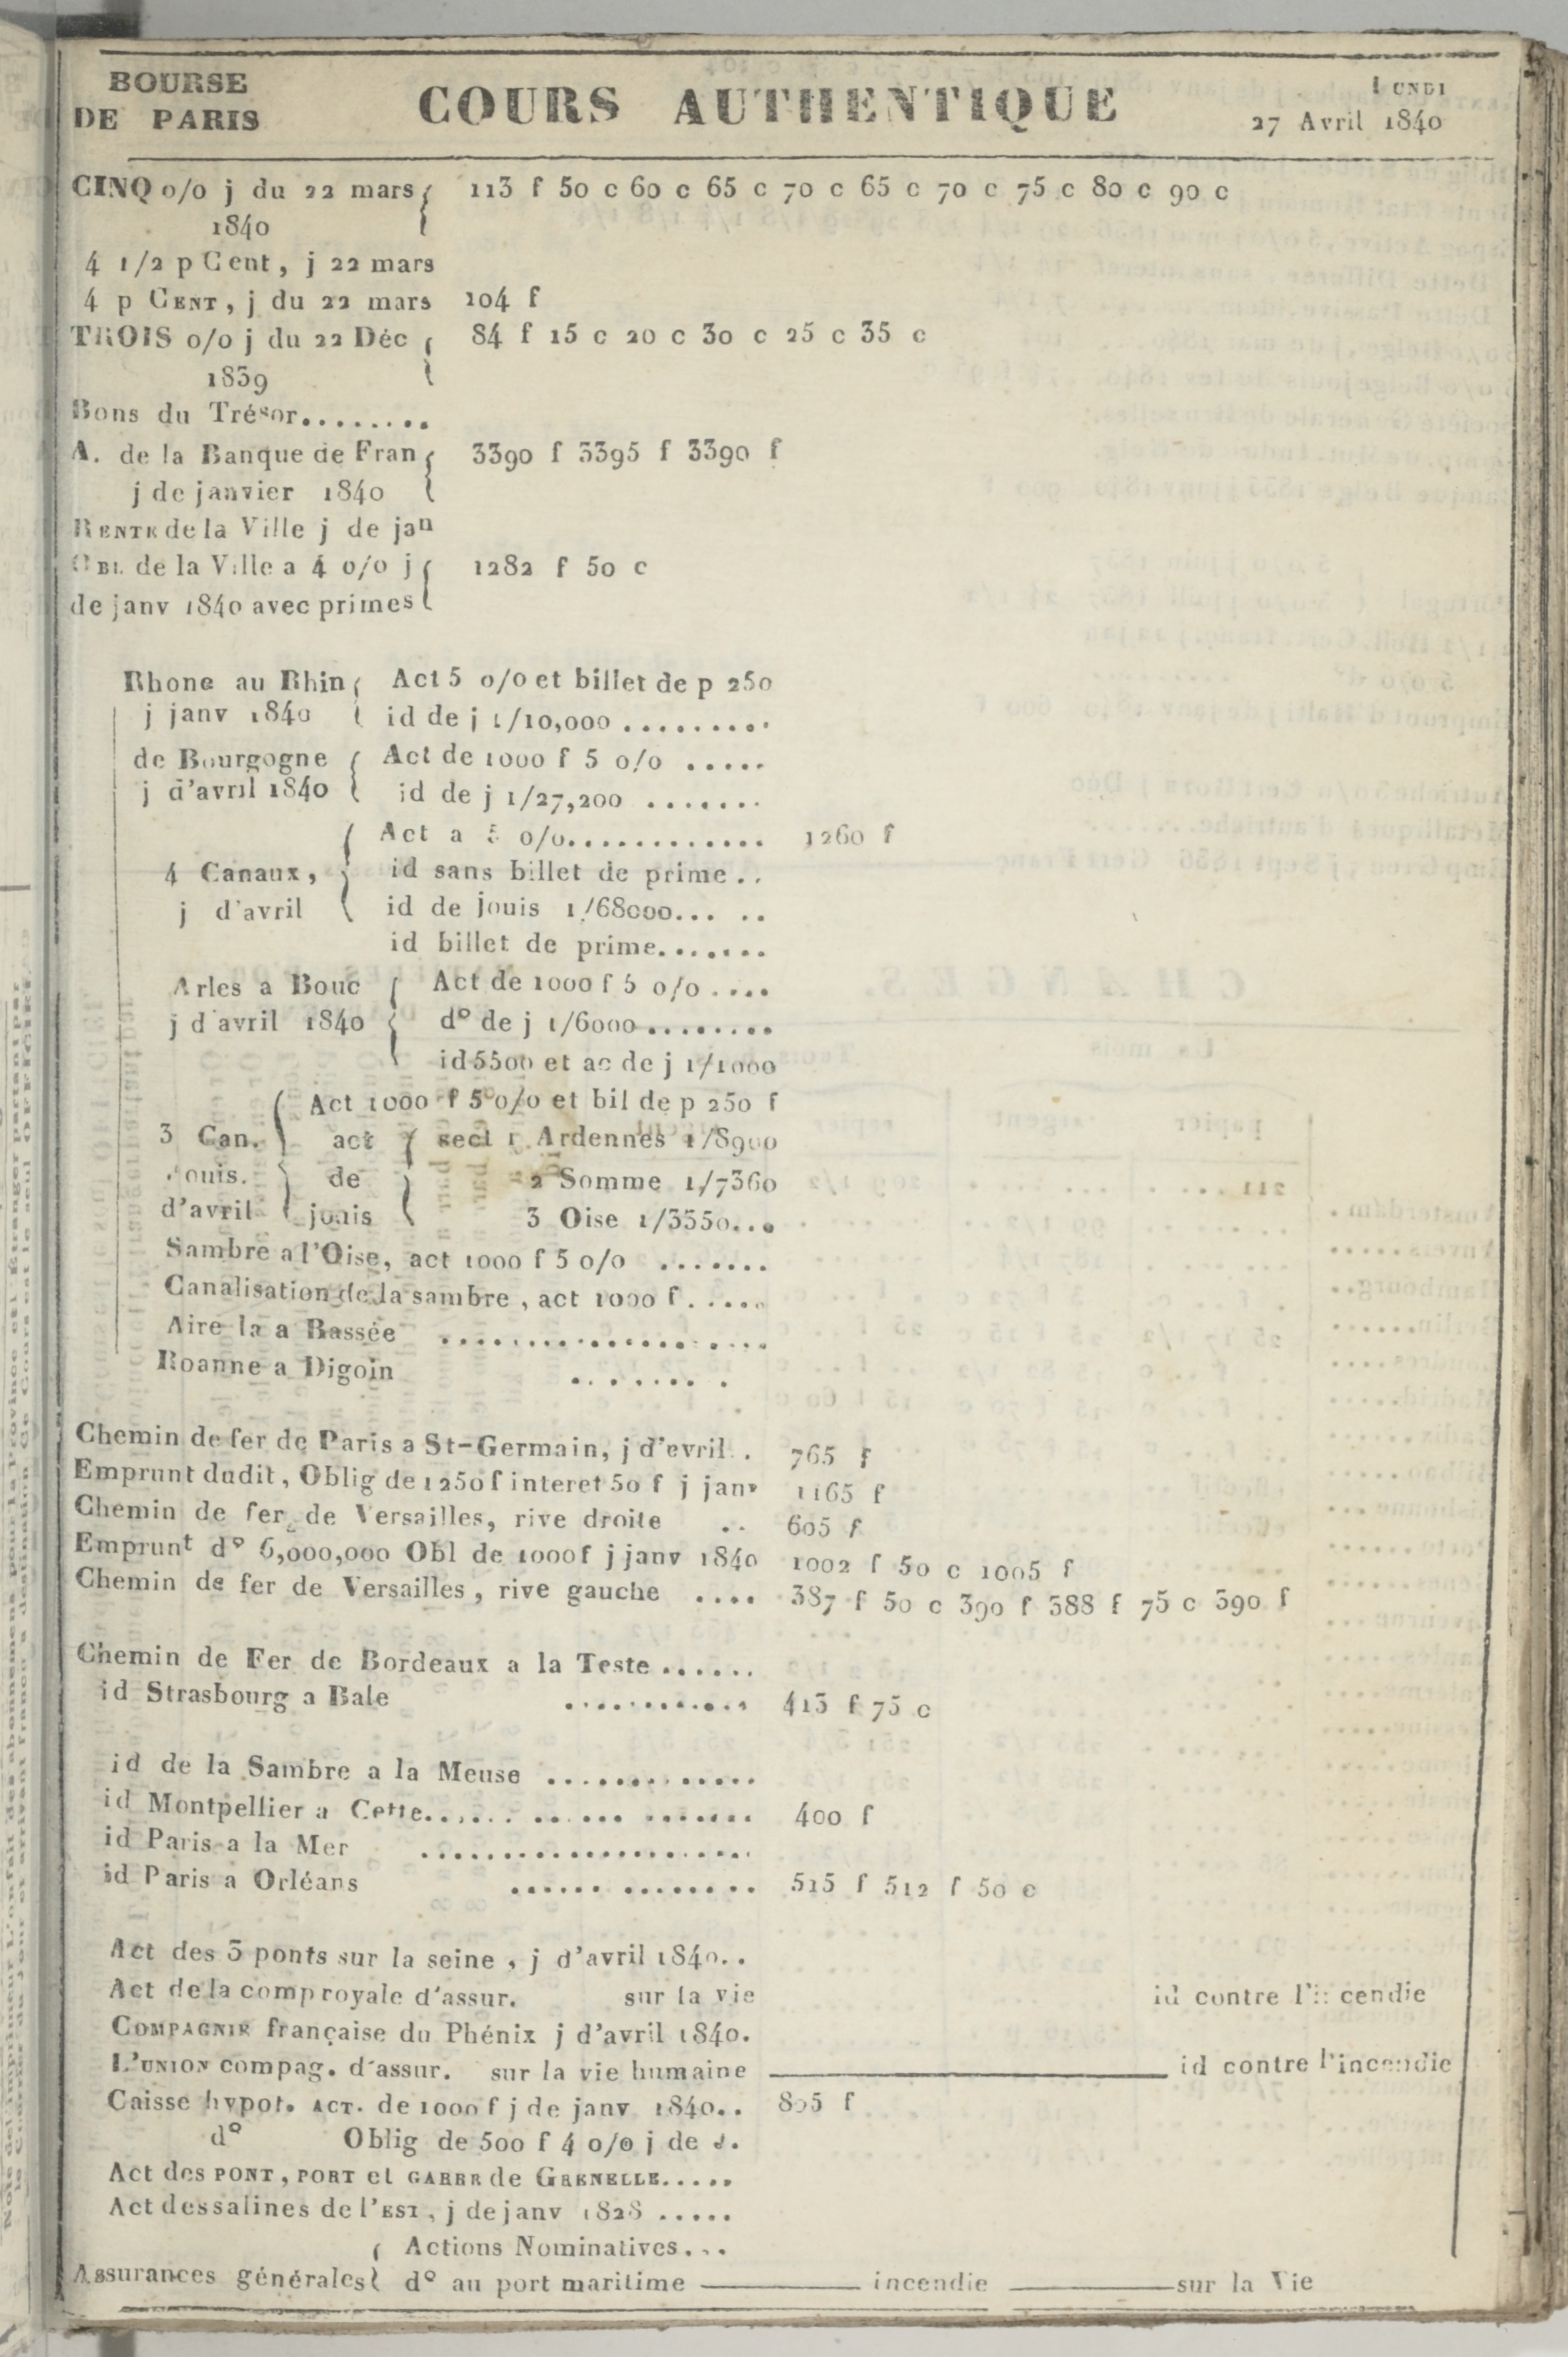 BOURSE
DE PARIS
COURS AUTHENTIQUE
LUNDI
27 Avril 1840
CINQ o/o j du 22 mars 113 f 50 c 60 c 65 c 70 c 65 c 70 c 75 c 80 c 90 c
1840
4 1/2 p Cent, j 22 mars
4 p CENT, j du 22 mars 104 f
TROIS o/o j du 22 Déc 84 f 15 c 20 c 30 c 25 c 35 c
1839
Bons du Trésor.........
A. de la Banque de Fran 3390 f 3395 f 3390 f
j de janvier 1840
RENTE de la Ville j de jan
OBL de la Ville a 4 o/o j 1282 f 50 c
de janv 1840 avec primes
Rhone au Rhin Act 5 o/o et billet de p 250
j janv 1840 id de j 1/10,000 .........
de Bourgogne Act de 1000 f 5 o/o .....
j d'avril 1840 id de j 1/27,200 .......
Act a 5 o/o............ 1260 f
4 Canaux, id sans billet de prime ..
j d'avril id de jouis 1/68000... ..
id billet de prime.......
Arles a Bouc Act de 1000 f 5 o/o ....
j d'avril 1840 d° de j 1/6000........
id 5500 et ac de j 1/1000
Act 1000 f 5 o/o et bil de p 250 f
3 Can. act sect 1 Ardennes 1/8900
ouis. de 2 Somme 1/7360
d'avril jouis 3 Oise 1/3550...
Sambre a l'Oise, act 1000 f 5 o/o .......
Canalisation de la sambre, act 1000 f.....
Aire la a Bassée ....................
Roanne a Digoin ........
Chemin de fer de Paris a St-Germain, j d'evril.. 765 f
Emprunt dudit, Oblig de 1250 f interet 50 f j janv 1165 f
Chemin de fer de Versailles, rive droite .. 605 f
Emprunt d° 6,000,000 Obl de 1000f j janv 1840 1002 f 50 c 1005 f
Chemin de fer de Versailles, rive gauche .... 387 f 50 c 390 f 388 f 75 c 390 f
Chemin de Fer de Bordeaux a la Teste ......
id Strasbourg a Bale ........... 413 f 75 c
id de la Sambre a la Meuse .............
id Montpellier a Cette...... ...... ....... 400 f
id Paris a la Mer .....................
id Paris a Orléans ...... ........ 515 f 512 f 50 c
Act des 3 ponts sur la seine, j d'avril 1840..
Act de la comp royale d'assur. sur la vie id contre l'incendie
COMPAGNIE française du Phénix j d'avril 1840.
L'UNION compag. d'assur. sur la vie humaine id contre l'incendie
Caisse hypot. ACT. de 1000 f j de janv 1840.. 805 f
d° Oblig de 500 f 4 o/o j de
Act des PONT, PORT et GARE de GRENELLE.....
Act des salines de l'EST, j de janv 1828 .....
Actions Nominatives...
Assurances générales d° au port maritime incendie sur la Vie